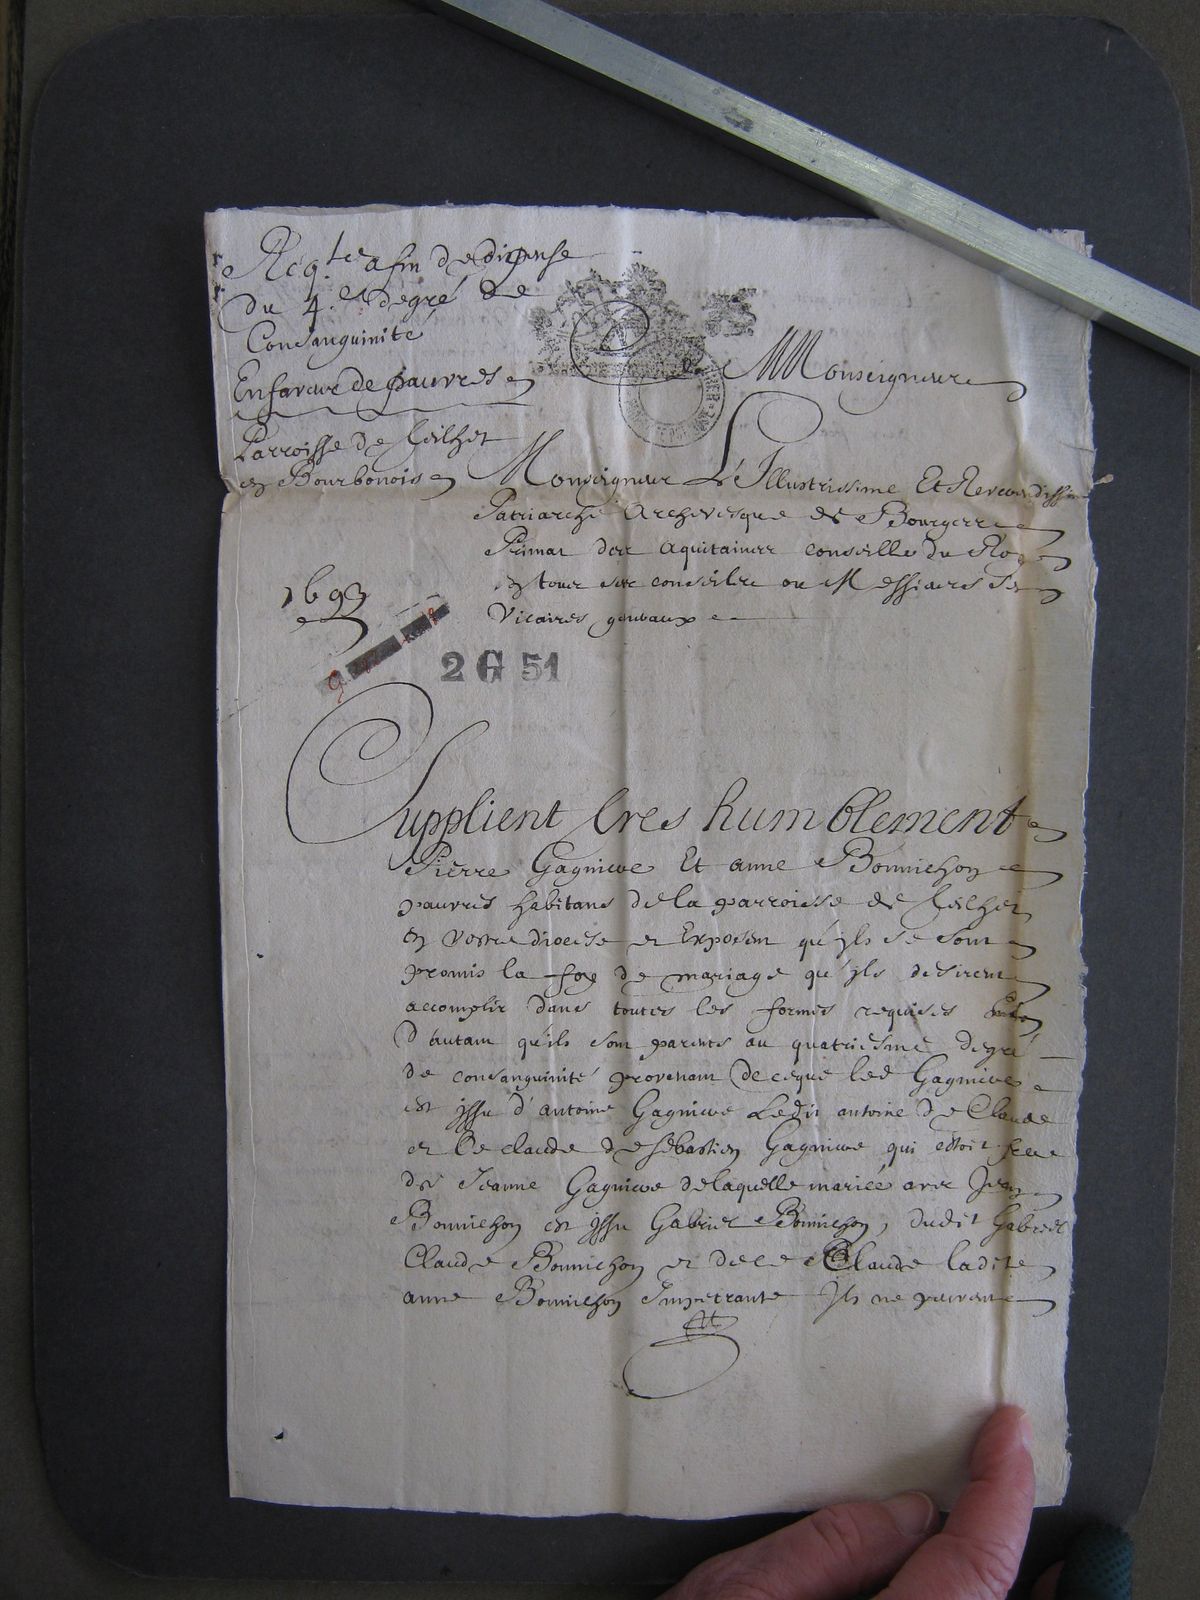 Reqte afin de dispense
du 4.e degré de
Consanguinité
En faveur de pauvres
Parroisse de Teilhet
en Bourbonois
1693
2 G 51
Monseigneur
Monseigneur L'Illustrissime Et Reverendissime
Patriarche Archevesque de Bourges
Primat des aquitaines conseiller du Roy
en tous ses conseils ou Messieurs Ses
Vicaires generaux
Supplient tres humblement
Pierre Gagniere Et anne Bonnichon
pauvres habitans de la parroisse de Teilhet
en vostre diocese et Exposent qu'ils se sont
promis la foy de mariage qu'ils desirent
accomplir dans toutes les formes requises
D'autant qu'ils sont parents au quatriesme degré
de consanguinité provenant de ce que led Gagniere
est issu d'antoine Gagniere Ledit antoine de Claude
et Le claude de Sebastien Gagniere qui estoit frere
de Jeanne Gagniere de laquelle mariée avec Jean
Bonnichon est issu Gabriel Bonnichon, dudit Gabriel
Claude Bonnichon et de ce Claude ladite
anne Bonnichon Impetrante Ils ne peuvent